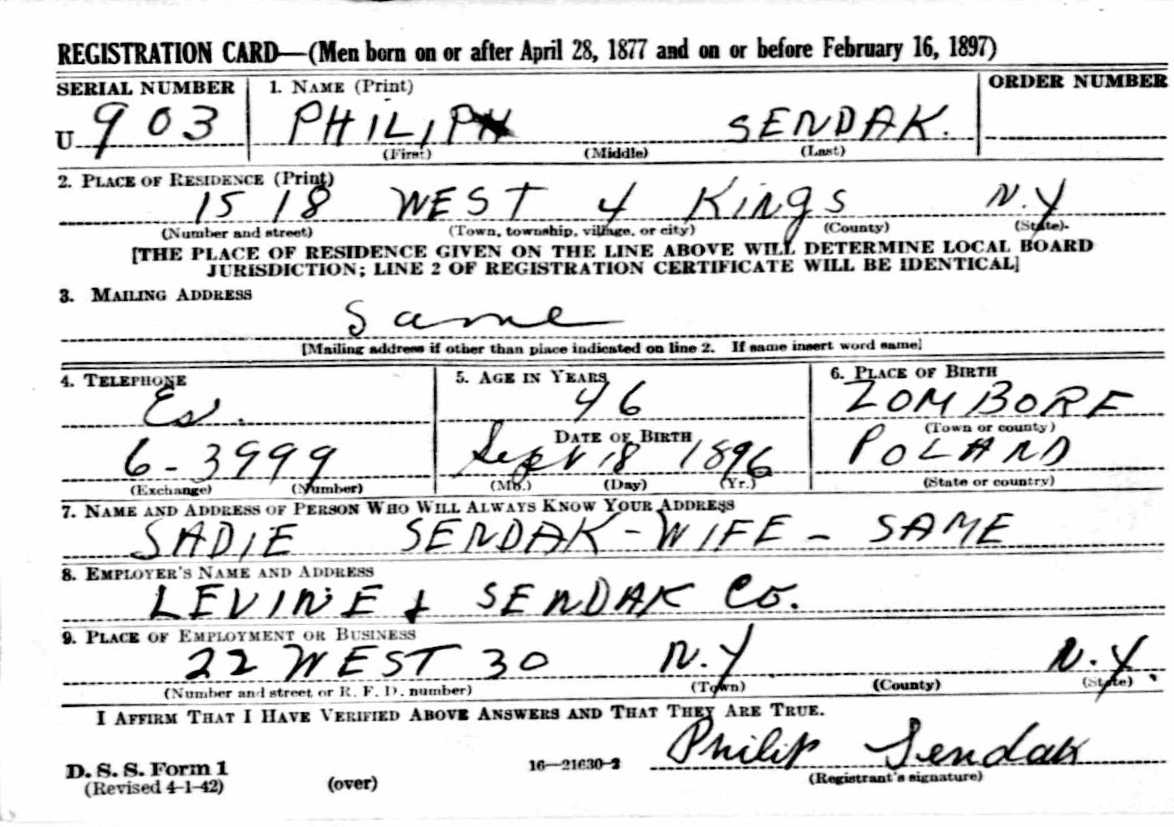 REGISTRATION CARD—(Men born on or after April 28, 1877 and on or before February 16, 1897)
SERIAL NUMBER 1. NAME (Print) ORDER NUMBER
U 903 PHILIP SENDAK.
(First) (Middle) (Last)
2. PLACE OF RESIDENCE (Print)
1518 WEST 4 KINGS N.Y
(Number and street) (Town, township, village, or city) (County) (State)
[THE PLACE OF RESIDENCE GIVEN ON THE LINE ABOVE WILL DETERMINE LOCAL BOARD
JURISDICTION; LINE 2 OF REGISTRATION CERTIFICATE WILL BE IDENTICAL]
3. MAILING ADDRESS
Same
[Mailing address if other than place indicated on line 2. If same insert word same]
4. TELEPHONE 5. AGE IN YEARS 6. PLACE OF BIRTH
Es. 46 ZOMBORF
DATE OF BIRTH (Town or county)
6-3999 Sept 18 1896 POLAND
(Exchange) (Number) (Mo.) (Day) (Yr.) (State or country)
7. NAME AND ADDRESS OF PERSON WHO WILL ALWAYS KNOW YOUR ADDRESS
SADIE SENDAK-WIFE - SAME
8. EMPLOYER'S NAME AND ADDRESS
LEVINE & SENDAK Co.
9. PLACE OF EMPLOYMENT OR BUSINESS
22 WEST 30 N.Y N.Y.
(Number and street or R. F. D. number) (Town) (County) (State)
I AFFIRM THAT I HAVE VERIFIED ABOVE ANSWERS AND THAT THEY ARE TRUE.
Philip Sendak
D. S. S. Form 1 16—21630-2 (Registrant's signature)
(Revised 4-1-42) (over)